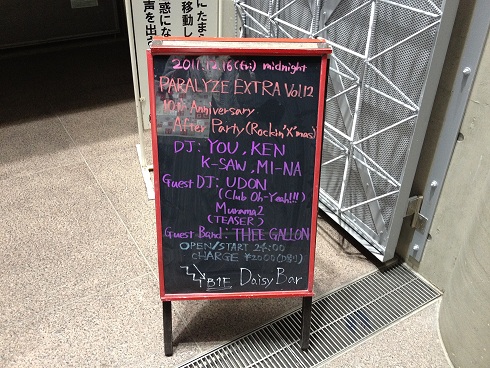 にたま
移動し
惑にな
声を出
2011.12.16(fri) midnight
PARALYZE EXTRA Vol.12
10th Anniversary
After Party (Rockin'X'mas)
DJ: YOU, KEN
K-SAW, MI-NA
Guest DJ: UDON
(Club Oh-Yeah!!!)
Murama2
(TEASER)
Guest Band: THEE GALLON
OPEN/START 24:00
CHARGE ¥2000(D別)
B1F Daisy Bar